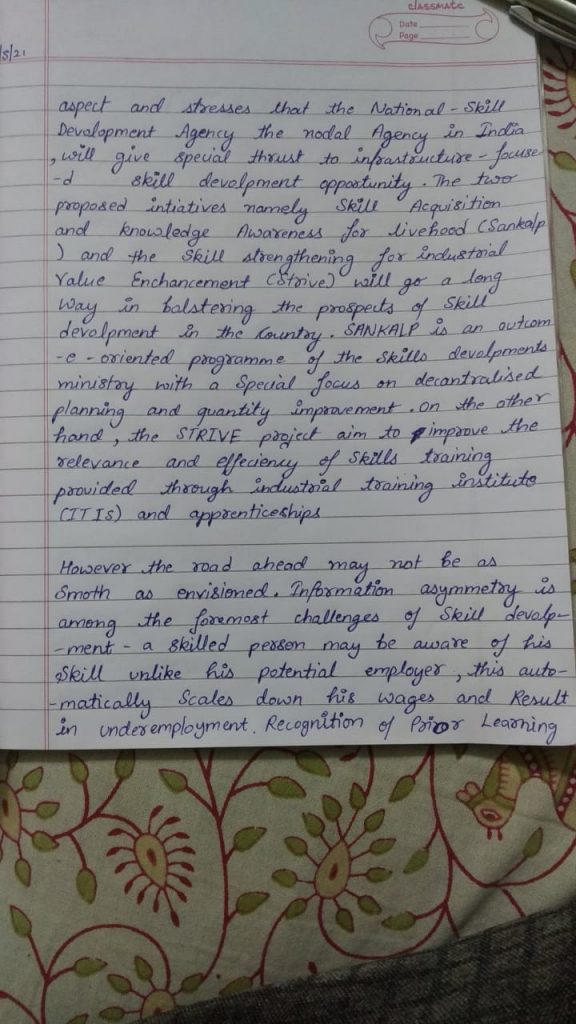 classmate
Date
Page
/5/21
aspect and stresses that the National - Skill
Devalopment Agency the nodal Agency in India
, will give special thrust to infrastructure - focuse
-d skill devolpment opportunity. The two
proposed intiatives namely Skill Acquisition
and knowledge Awareness for livehood (Sankalp
) and the Skill strengthening for industrial
Value Enchancement (Strive) will go a long
Way in balstering the prospects of Skill
devalpment in the Country. SANKALP is an outcom
-e - oriented programme of the Skills devalpments
ministry with a Special focus on decantralised
planning and quantity improvement. On the other
hand, the STRIVE project aim to improve the
relevance and effeciency of Skills training
provided through industrial training institute
(ITIS) and apprenticeships
However the road ahead may not be as
Smoth as envisioned. Information asymmetry is
among the foremost challenges of Skill devalp-
-ment - a skilled person may be aware of his
Skill unlike his potential employer, this auto-
-matically Scales down his wages and Result
in underemployment. Recognition of Prior Learning